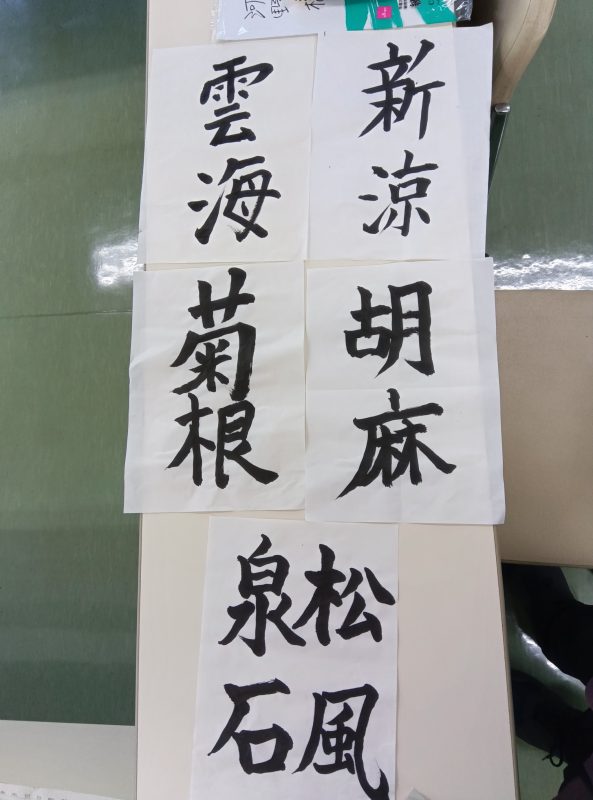 新涼
雲海
胡麻
菊根
松風
泉石